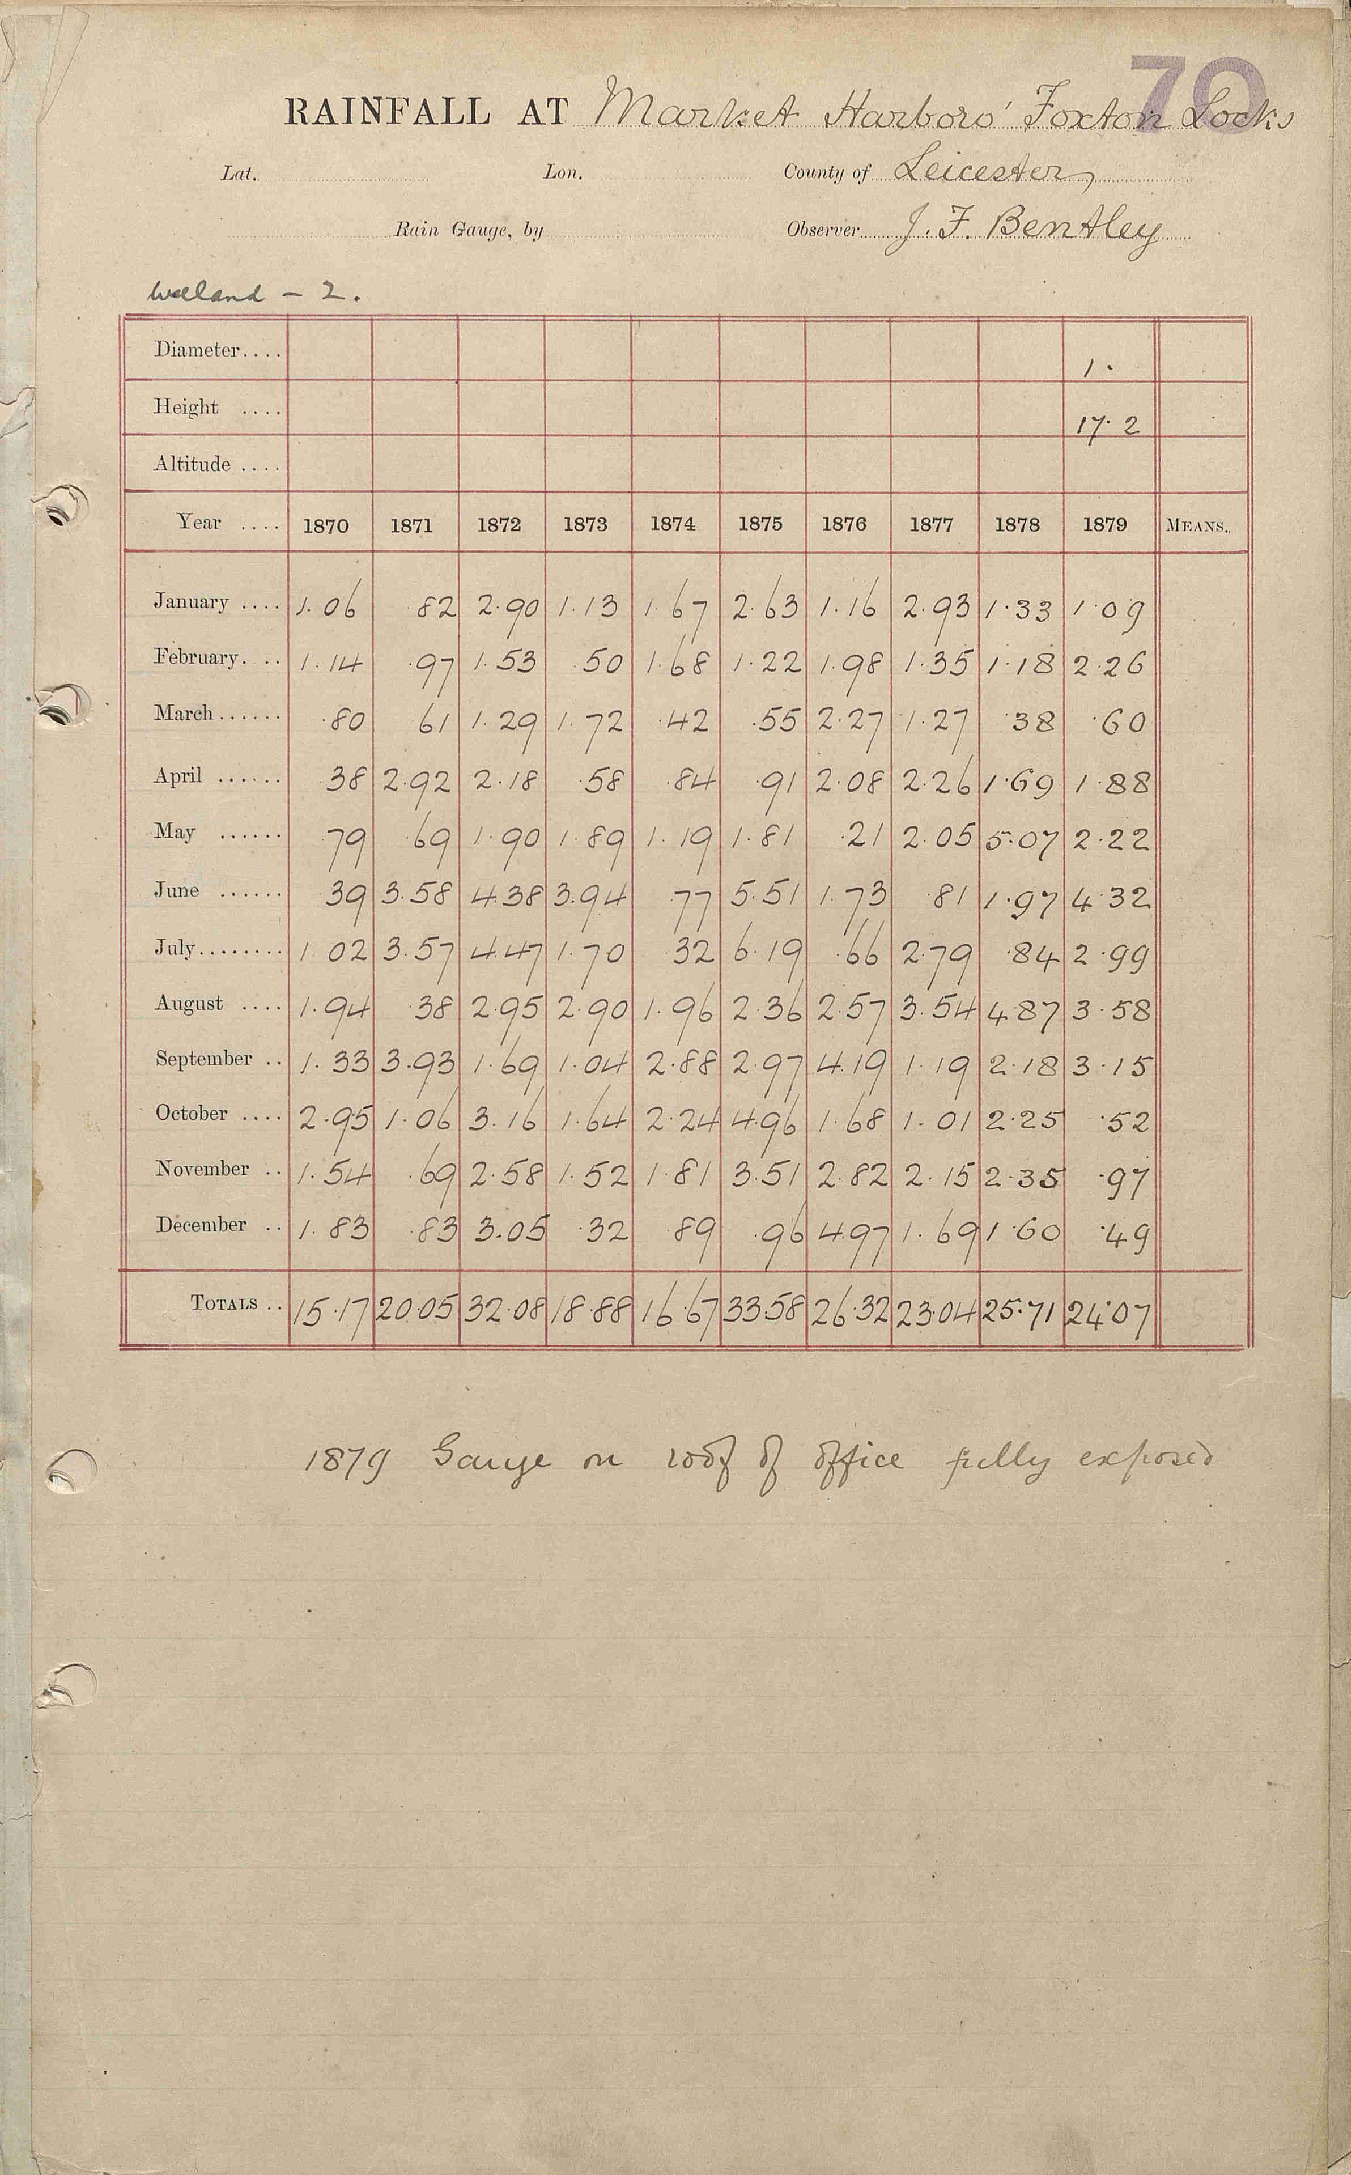 70
RAINFALL AT Market Harboro' Foxton Locks
Lat. Lon. County of Leicester
Rain Gauge, by Observer J. F. Bentley
Welland - 2.
Diameter.... 1.
Height .... 17.2
Altitude ....
Year .... 1870 1871 1872 1873 1874 1875 1876 1877 1878 1879 MEANS.
January .... 1.06 .82 2.90 1.13 1.67 2.63 1.16 2.93 1.33 1.09
February. .. 1.14 .97 1.53 .50 1.68 1.22 1.98 1.35 1.18 2.26
March...... .80 61 1.29 1.72 .42 .55 2.27 1.27 .38 .60
April ...... 38 2.92 2.18 .58 .84 .91 2.08 2.26 1.69 1.88
May ...... .79 .69 1.90 1.89 1.19 1.81 .21 2.05 5.07 2.22
June ...... 39 3.58 4.38 3.94 .77 5.51 1.73 .81 1.97 4.32
July........ 1.02 3.57 4.47 1.70 .32 6.19 .66 2.79 .84 2.99
August .... 1.94 .38 2.95 2.90 1.96 2.36 2.57 3.54 4.87 3.58
September .. 1.33 3.93 1.69 1.04 2.88 2.97 4.19 1.19 2.18 3.15
October .... 2.95 1.06 3.16 1.64 2.24 4.96 1.68 1.01 2.25 .52
November .. 1.54 .69 2.58 1.52 1.81 3.51 2.82 2.15 2.35 .97
December .. 1.83 .83 3.05 .32 89 .96 4.97 1.69 1.60 .49
TOTALS .. 15.17 20.05 32.08 18.88 16.67 33.58 26.32 23.04 25.71 24.07
1879 Gauge on roof of office fully exposed